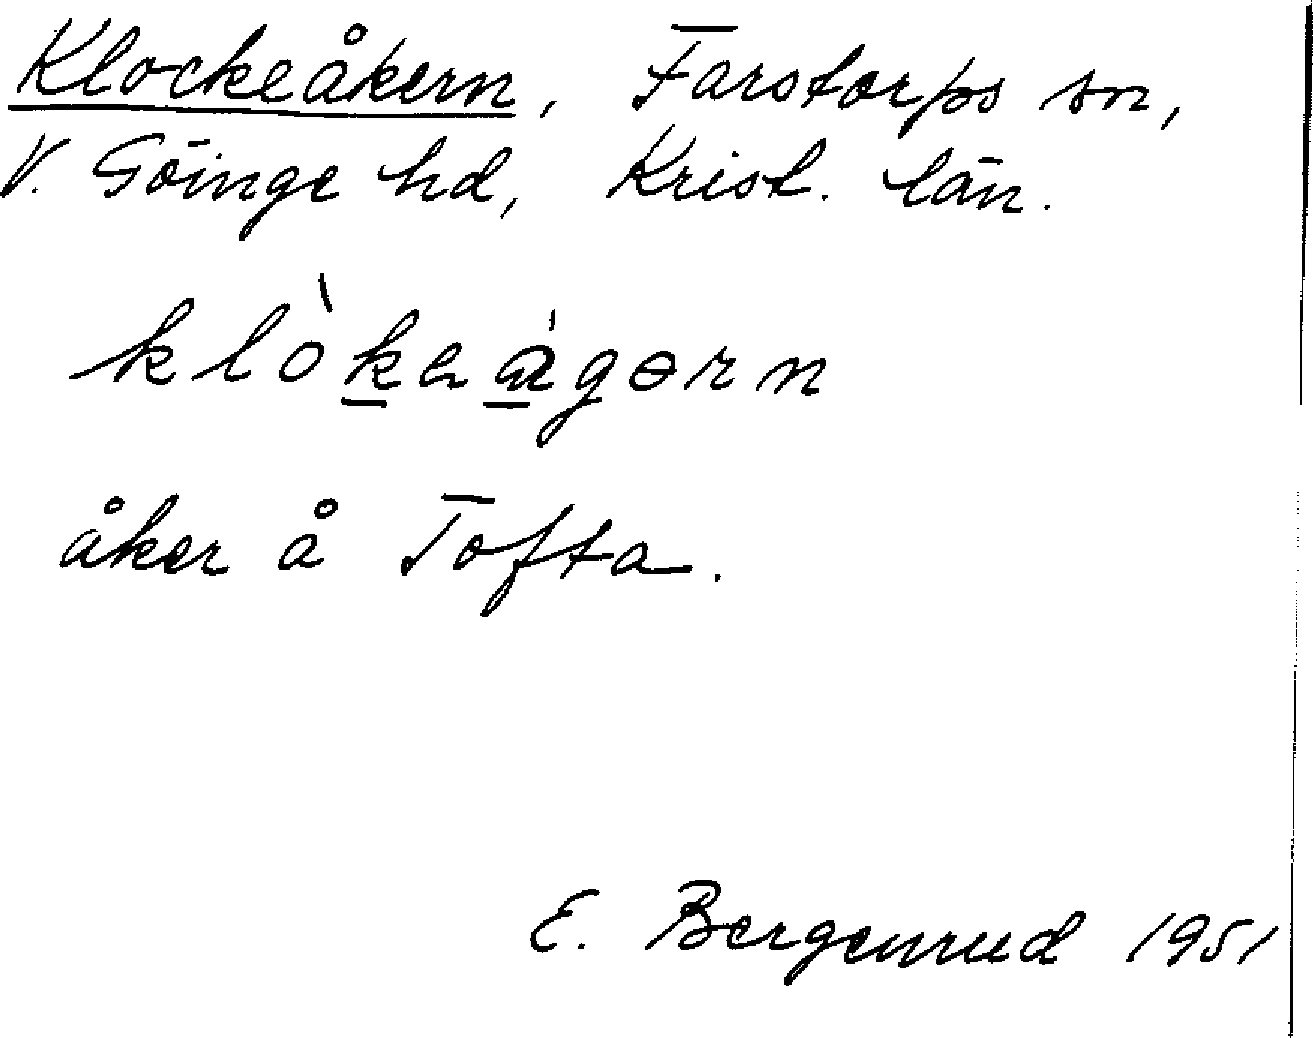 Klockeåkern, Farstorps sn,
V. Göinge hd, Krist. län.
klòkaágərn
åker å Tofta.
E. Bergenrud 1951